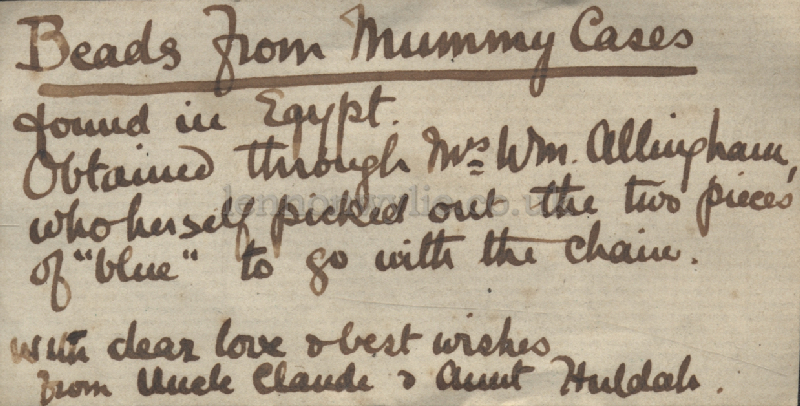 Beads from Mummy Cases
found in Egypt.
Obtained through Mrs Wm. Allingham,
who herself picked out the two pieces
of "blue" to go with the chain.
With dear love & best wishes
from Uncle Claude & Aunt Huldah.